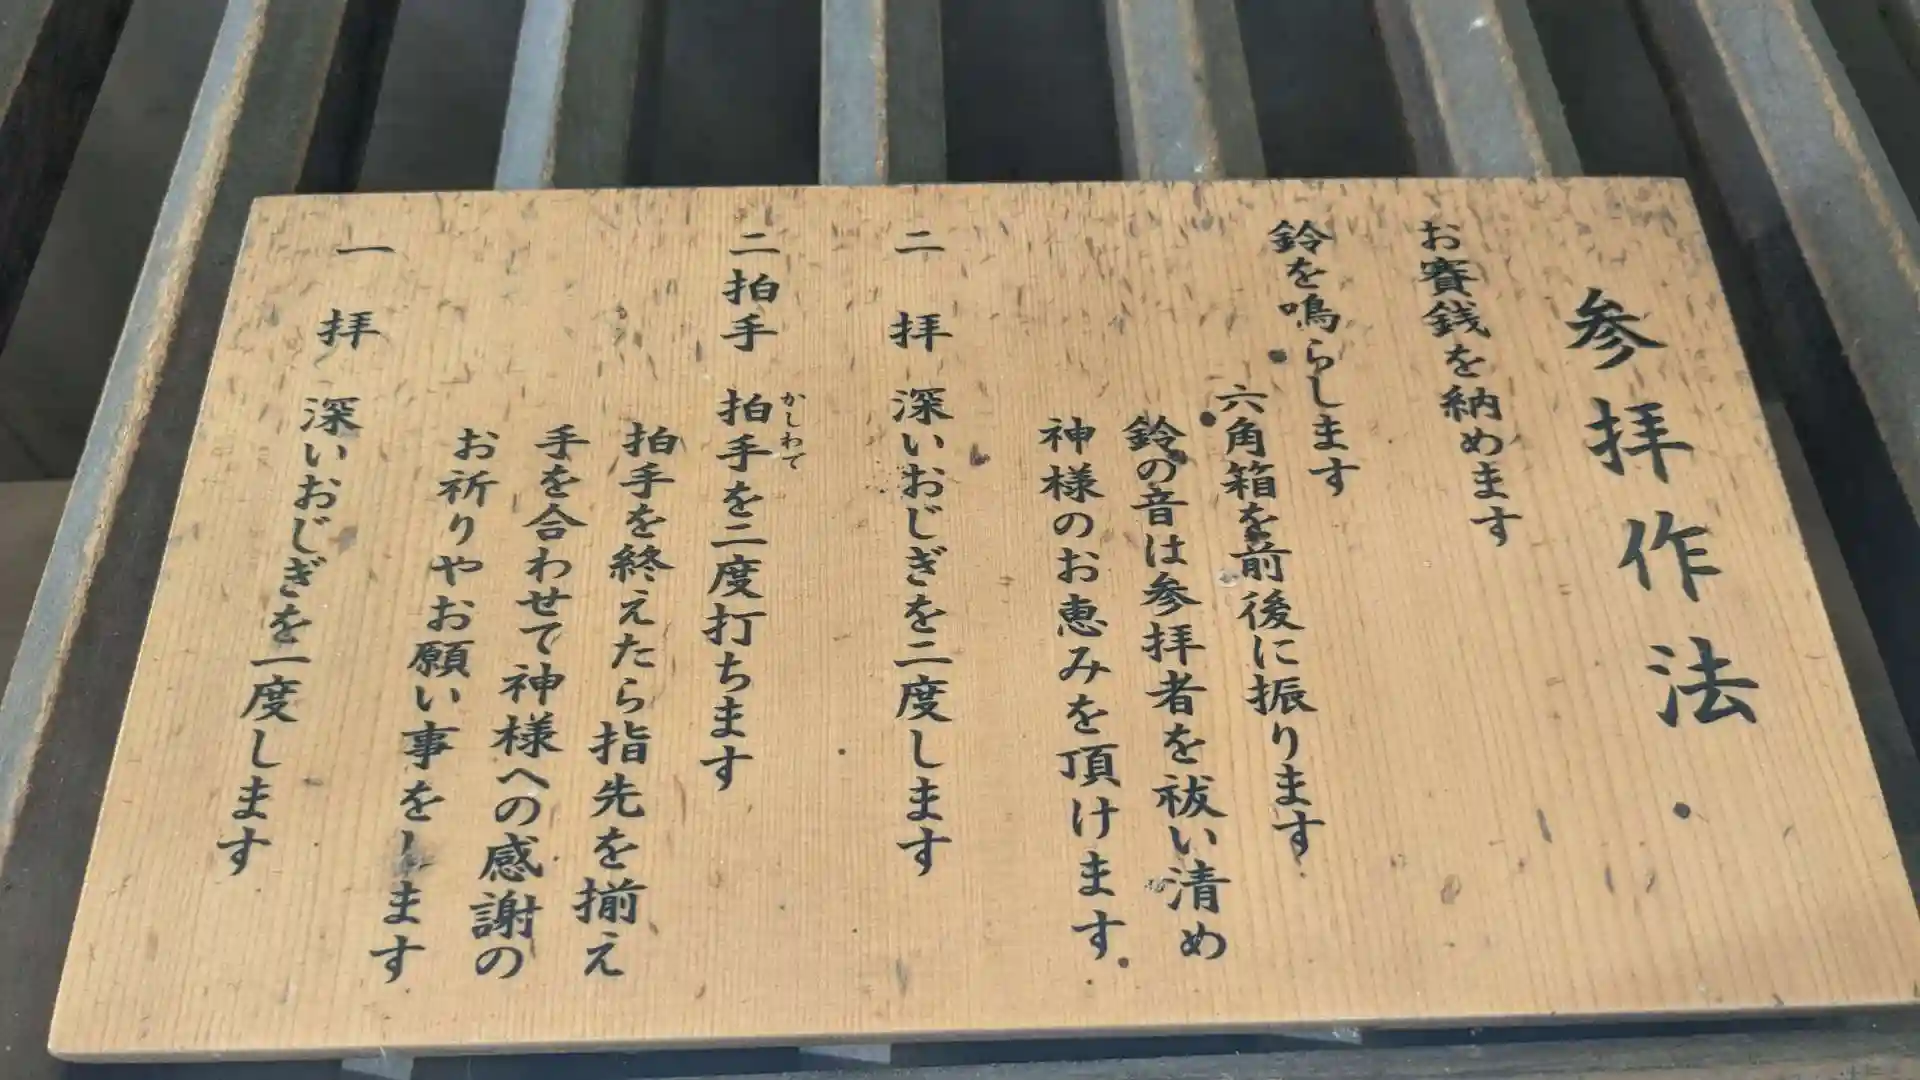 参拝作法
お賽銭を納めます
鈴を鳴らします
六角箱を前後に振ります
鈴の音は参拝者を祓い清め
神様のお恵みを頂けます
二 拝 深いおじぎを二度します
二拍手 拍手を二度打ちます
かしわて
拍手を終えたら指先を揃え
手を合わせて神様への感謝の
お祈りやお願い事をします
一 拝 深いおじぎを一度します